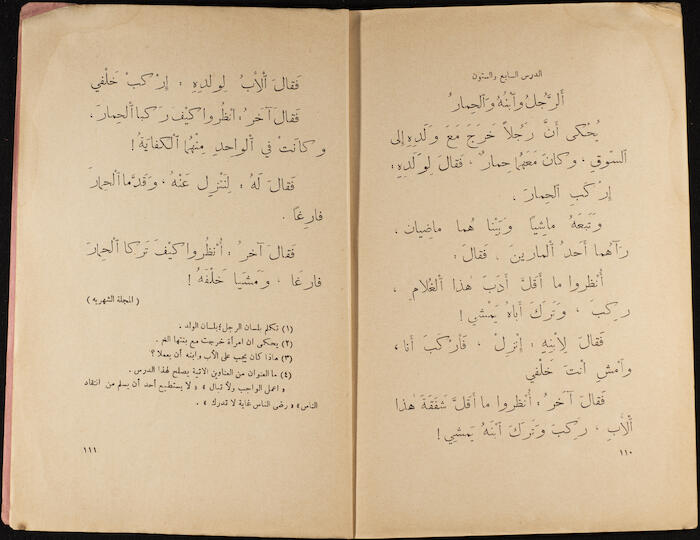 الدرس السابع والستون
أَلرَّجُلُ وَٱبْنُهُ وَٱلحِمارُ
يُحْكى أَنَّ رَجُلاً خَرَجَ مَعَ وَلَدِهِ إِلى
ٱلسّوقِ ، وكانَ مَعَهُما حِمارٌ ، فَقالَ لِوَلَدِهِ :
إِرْكَبِ ٱلحِمارَ .
وَتَبِعَهُ ماشِيًا وَبَيْنا هُما ماضِيانِ ،
رَآهُما أَحَدُ ٱلمارينَ . فَقالَ :
أُنْظُروا ما أَقَلَّ أَدَبَ هذا ٱلغُلامِ ،
رَكِبَ ، وَتَرَكَ أَباهُ يَمْشي !
فَقالَ لِابْنِهِ : إِنْزِلْ ، فَأَرْكَبَ أَنا ،
وَٱمْشِ أَنْتَ خَلْفي
فَقالَ آخَرُ : أُنْظُروا ما أَقَلَّ شَفَقَةَ هٰذا
ٱلأَبِ ، رَكِبَ وَتَرَكَ ٱبْنَهُ يَمْشي !
١١٠
فَقالَ ٱلأَبُ لِوَلدِهِ : إِرْكَبْ خَلْفي
فَقالَ آخَرُ : أُنْظُروا كَيْفَ رَكِبا ٱلحِمارَ ،
وكانَتْ في ٱلواحِدِ مِنْهُما ٱلكِفايَةُ !
فَقالَ لَهُ : لِنَنْزِلْ عَنْهُ ، وَقَدَّما ٱلحِمارَ
فارِغًا .
فَقالَ آخَرُ : أُنْظُروا كَيْفَ تَرَكا ٱلحِمارَ
فارِغًا ، وَمَشَيا خَلْفَهُ !
( المجلة الشهرية )
(١) تكلم بلسان الرجل؛ بلسان الولد .
(٢) يحكى ان امرأة خرجت مع بنتها الخ .
(٣) ماذا كان يجب على الأب وابنه أن يعملا ؟
(٤) ما العنوان من العناوين الاتية يصلح لهذا الدرس .
« اعمل الواجب ولا تبال » « لا يستطيع أحد أن يسلم من انتقاد
الناس » « رضى الناس غاية لا تدرك » .
١١١